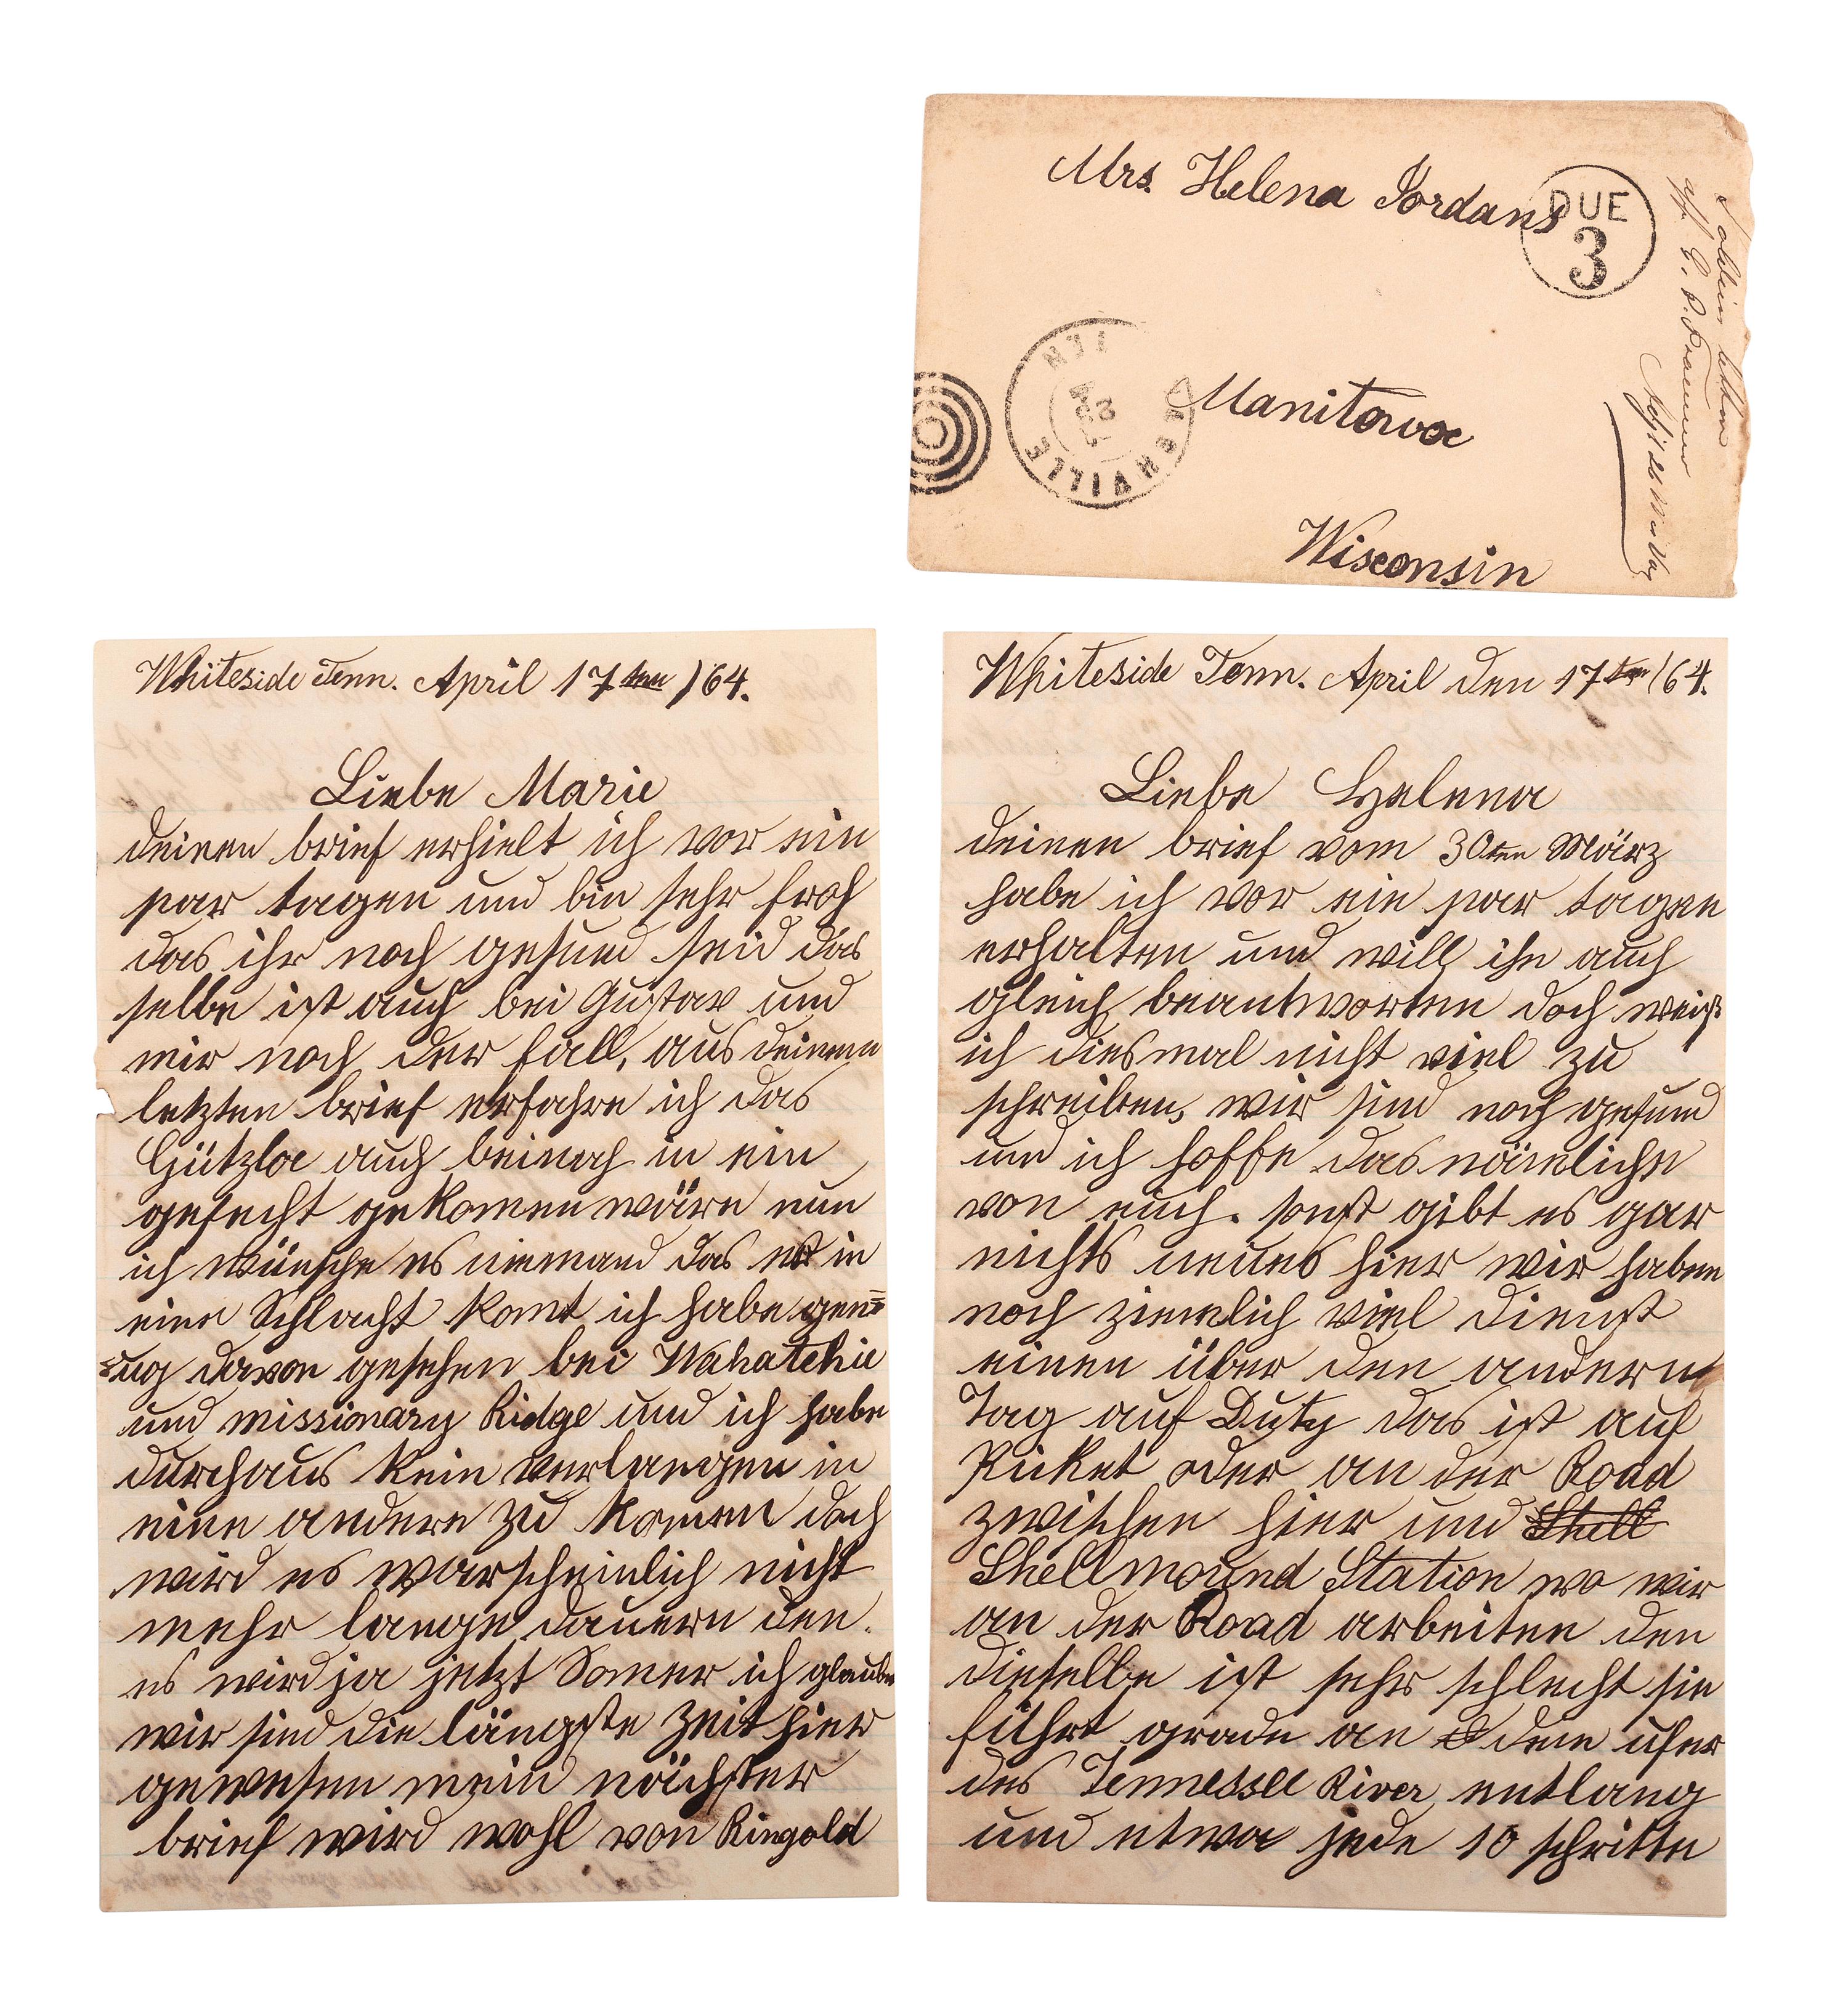 Mrs. Helena Jordans
DUE
3
Manitowoc
Wisconsin
Soldiers letter
Whiteside Tenn. April 17ten /64.
Liebe Marie
deinen brief erhielt ich vor ein
par tagen und bin sehr froh
das ihr noch gesund seid das
selbe ist auch bei Gustav und
mir noch der fall, aus deinem
letzten brief erfahre ich das
Gützloe auch beinah in ein
gefecht gekomen wäre nun
ich wünsche es niemand das er in
eine Schlacht komt ich habe gen=
=ug davon gesehen bei Wahatchie
und missionary Ridge und ich habe
durchaus kein verlangen in
eine andere zu komen doch
wird es warscheinlich nicht
mehr lange dauern den.
es wird ja jetzt Somer ich glaube
wir sind die längste zeit hier
gewesen mein nächster
brief wird wohl von Ringold
Whiteside Tenn. April den 17ten /64.
Liebe Helena
deinen brief vom 30ten März
habe ich vor ein par tagen
erhalten und will ihn auch
gleich beantworten doch weiß
ich diesmal nicht viel zu
schreiben, wir sind noch gesund
und ich hoffe das nämliche
von euch. sonst gibt es gar
nichts neues hier wir haben
noch ziemlich viel dienst
einen über den andern
Tag auf Duty das ist auf
Picket oder an der Road
zwischen hier und Shell
Shellmound Station wo wir
an der Road arbeiten den
dieselbe ist sehr schlecht sie
führt grade an dem ufer
des Tennessee River entlang
und etwa jede 10 schritte